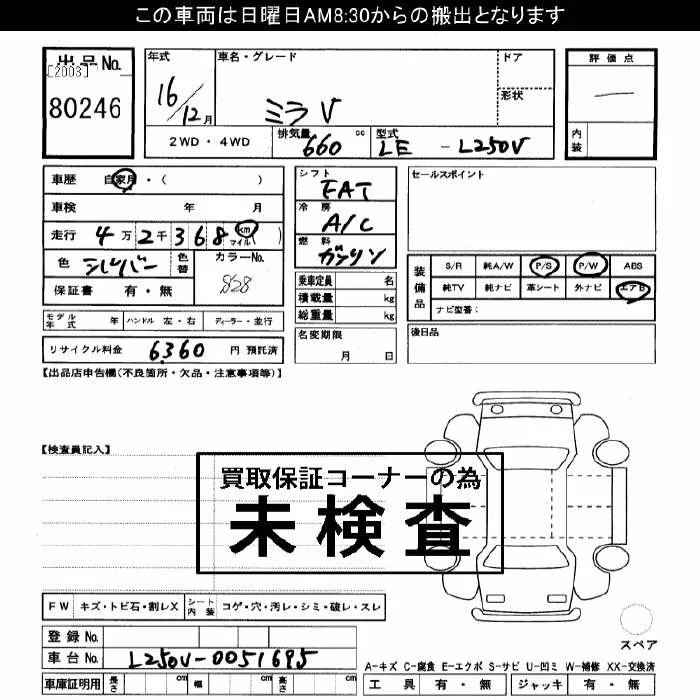 この車両は日曜日AM8:30からの搬出となります
出品No. 年式 車名・グレード ドア 評価点
[2003]
80246 16/12月 ミラV 形状 —
排気量 型式 内装
2WD・4WD 660 cc LE - L250V
車歴 自家用・( ) シフト FAT セールスポイント
車検 年 月 冷房 A/C
走行 4万2千368 km マイル ( ) 燃料 ガソリン
色 シルバー 色替 カラーNo. S28 装備品 S/R 純A/W P/S P/W ABS
保証書 有・無 乗車定員 名 純TV 純ナビ 革シート 外ナビ エアB
積載量 kg ナビ型番:
モデル年式 年 ハンドル 左・右 ディーラー・並行 総重量 kg
リサイクル料金 6,360 円 預託済 名変期限 後日品
月 日
【出品店申告欄(不良箇所・欠品・注意事項等)】
【検査員記入】
買取保証コーナーの為
未検査
FW キズ・トビ石・割レX シート内装 コゲ・穴・汚レ・シミ・破レ・スレ
登録No.
スペア
車台No. L250V-0051695
A-キズ C-腐食 E-エクボ S-サビ U-凹ミ W-補修 XX-交換済
車庫証明用 長さ cm 幅 cm 高さ cm 工具 有・無 ジャッキ 有・無